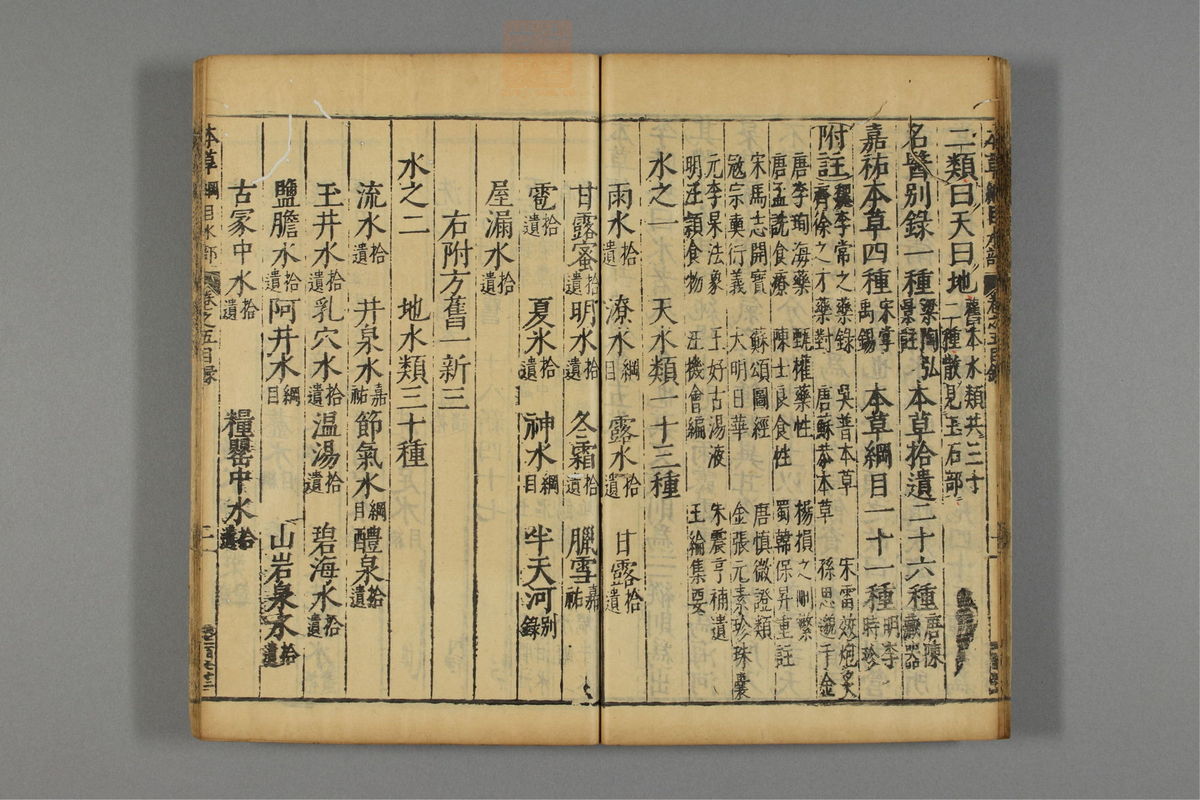 二類曰天曰地 舊本水類共三十
二種散見玉石部
名醫別錄一種 梁陶弘
景註 本草拾遺二十六種 唐陳
藏器
嘉祐本草四種 宋掌
禹錫 本草綱目一十一種 明李
時珍
附註 魏李當之藥錄 吳普本草 宋雷斅炮炙
齊徐之才藥對 唐蘇恭本草 孫思邈千金
唐李珣海藥 甄權藥性 楊損之刪繁
唐孟詵食療 陳士良食性 蜀韓保昇重註
宋馬志開寶 蘇頌圖經 唐慎微證類
寇宗奭衍義 大明日華 金張元素珍珠囊
元李杲法象 王好古湯液 朱震亨補遺
明汪穎食物 汪機會編 王綸集要
水之一 天水類一十三種
雨水拾遺 潦水綱目 露水拾遺 甘露拾遺
甘露蜜拾遺 明水拾遺 冬霜拾遺 臘雪嘉祐
雹拾遺 夏氷拾遺 神水綱目 半天河別錄
屋漏水拾遺
右附方舊一新三
水之二 地水類三十種
流水拾遺 井泉水嘉祐 節氣水綱目 醴泉拾遺
玉井水拾遺 乳穴水拾遺 温湯拾遺 碧海水拾遺
鹽膽水拾遺 阿井水綱目 山岩泉水拾遺
古冢中水拾遺 糧罌中水拾遺
本草綱目水部 卷之五目錄 二